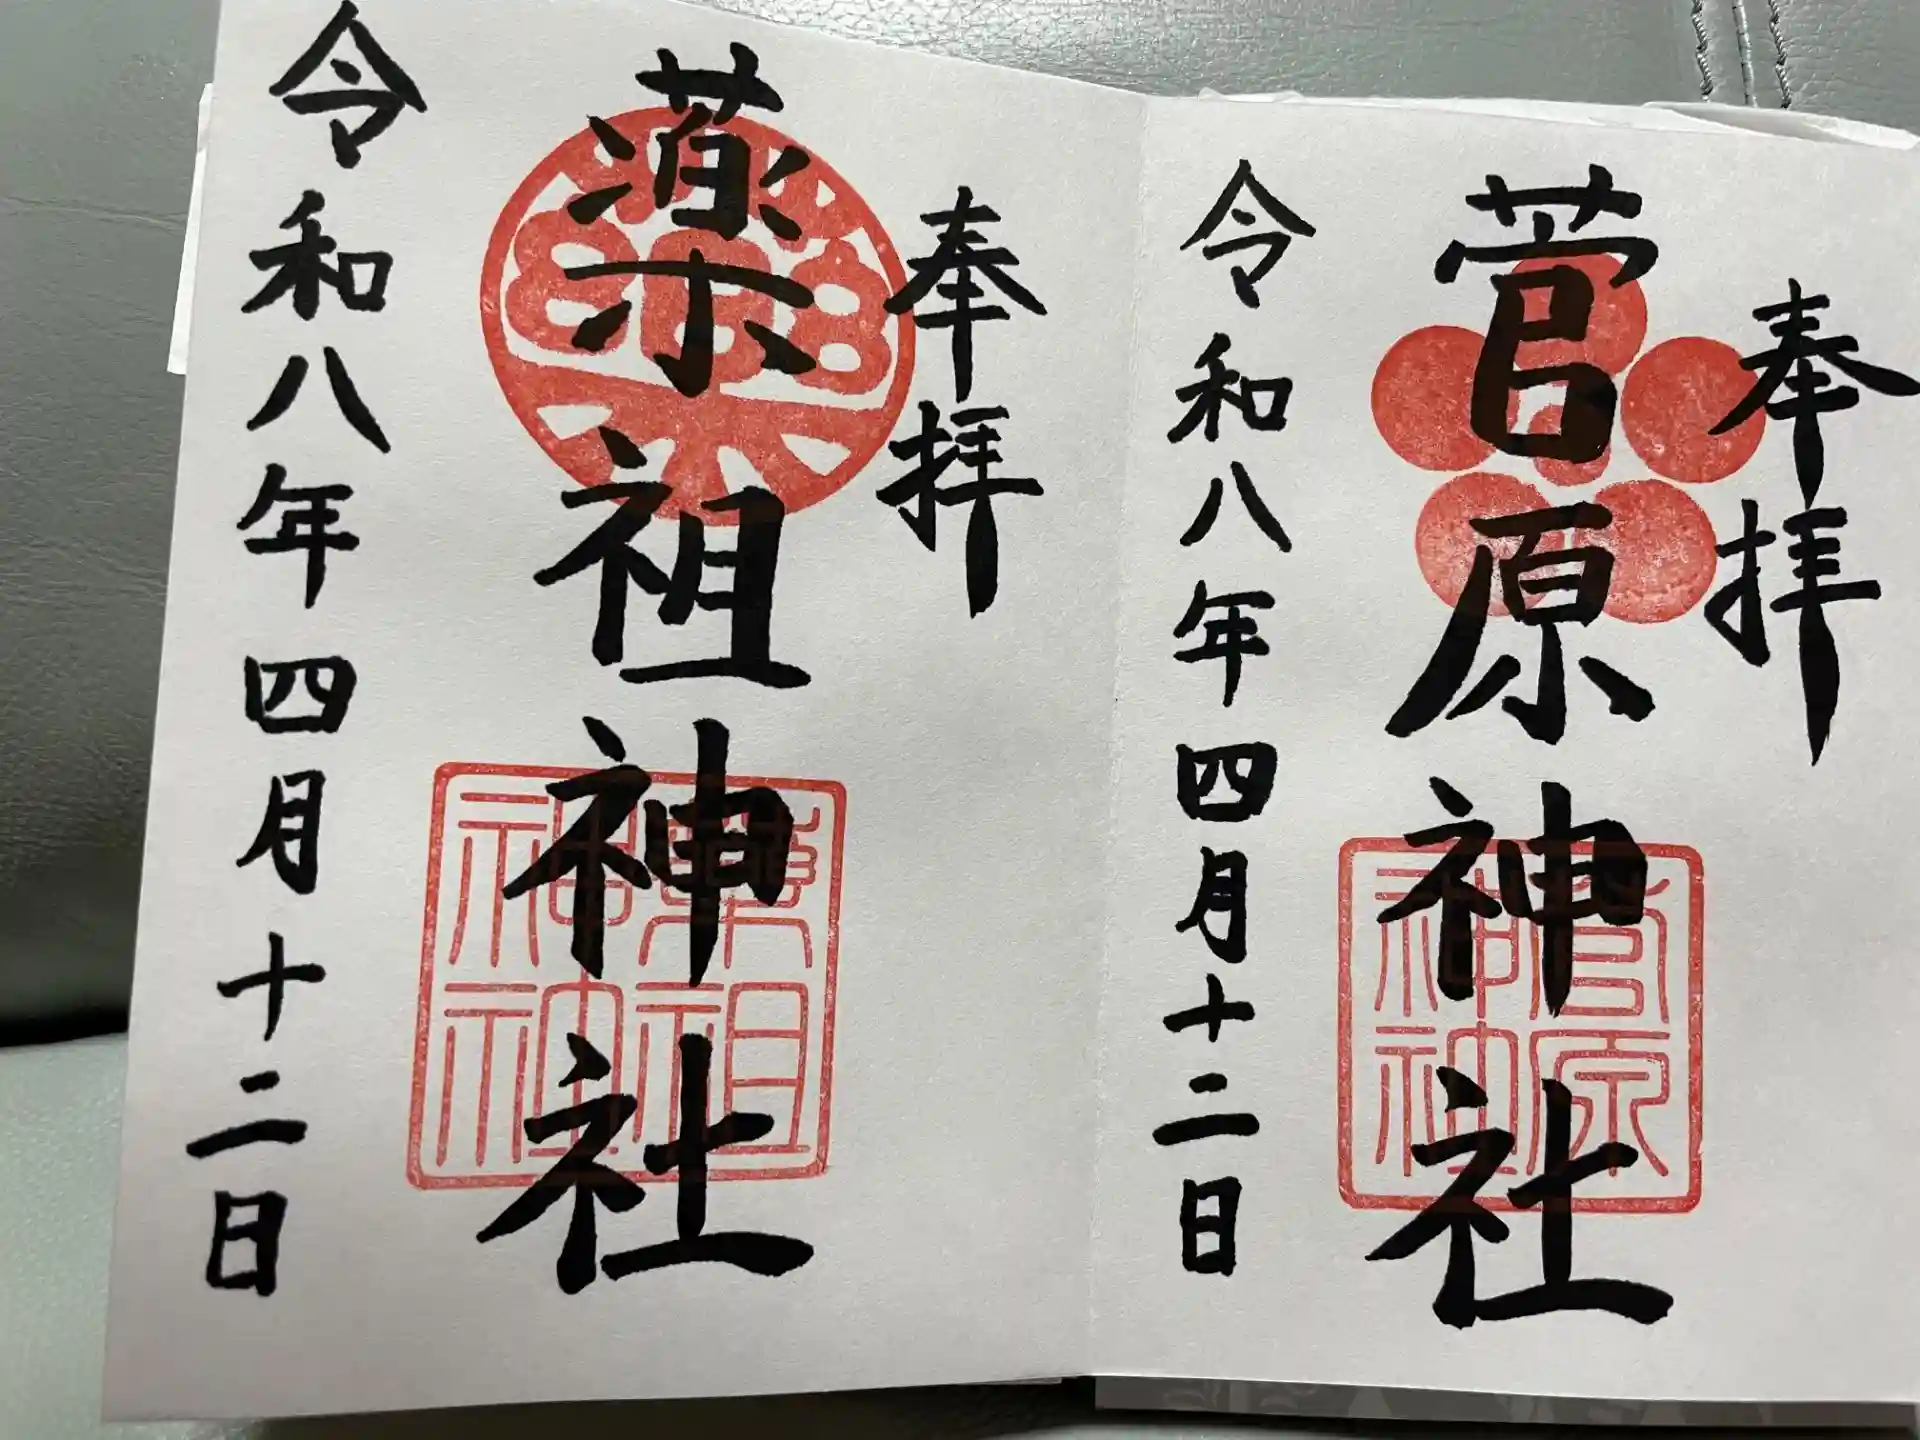 奉拝
菅原神社
菅原神社
令和八年四月十二日
奉拝
薬祖神社
薬祖神社
令和八年四月十二日